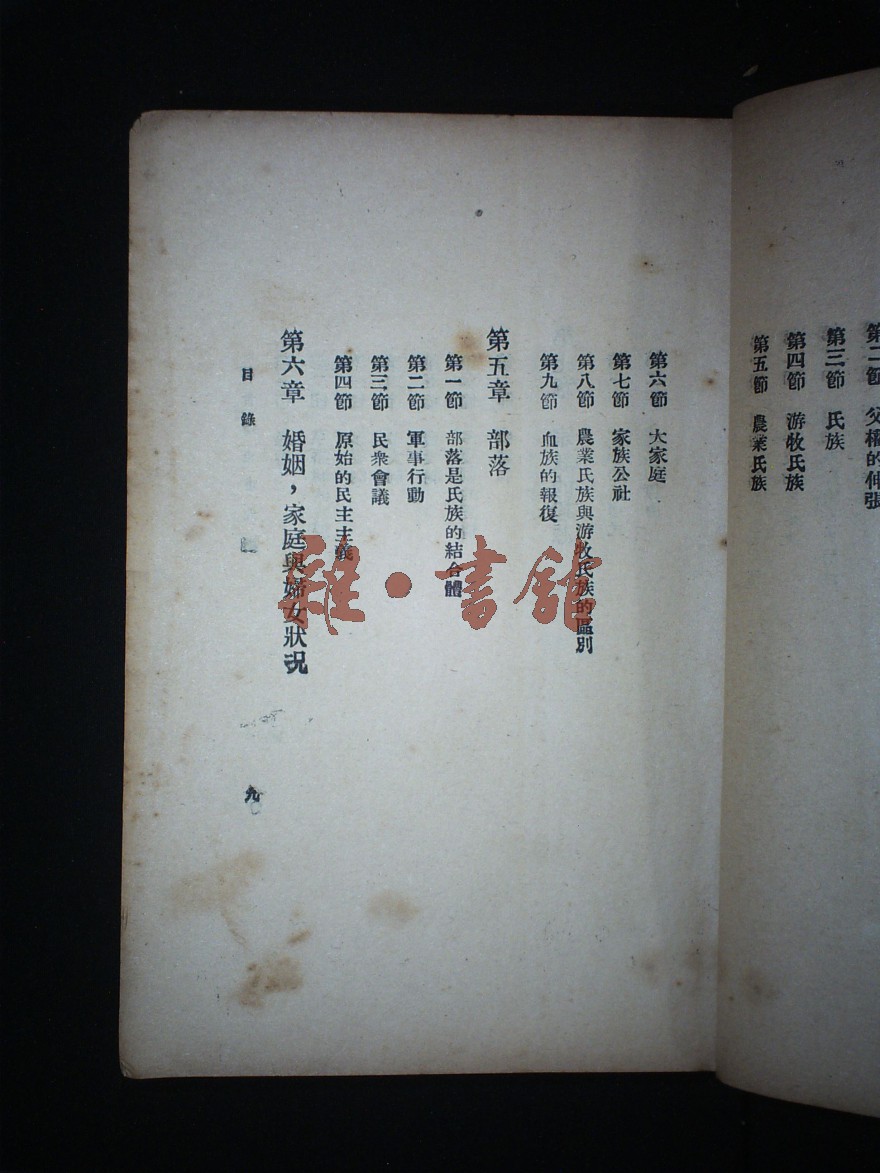 第二節　父權的伸張
第三節　氏族
第四節　游牧氏族
第五節　農業氏族
第六節　大家庭
第七節　家族公社
第八節　農業氏族與游牧氏族的區別
第九節　血族的報復
第五章　部落
第一節　部落是氏族的結合體
第二節　軍事行動
第三節　民衆會議
第四節　原始的民主主義
第六章　婚姻，家庭與婦女狀况
目錄
九
雜·書館